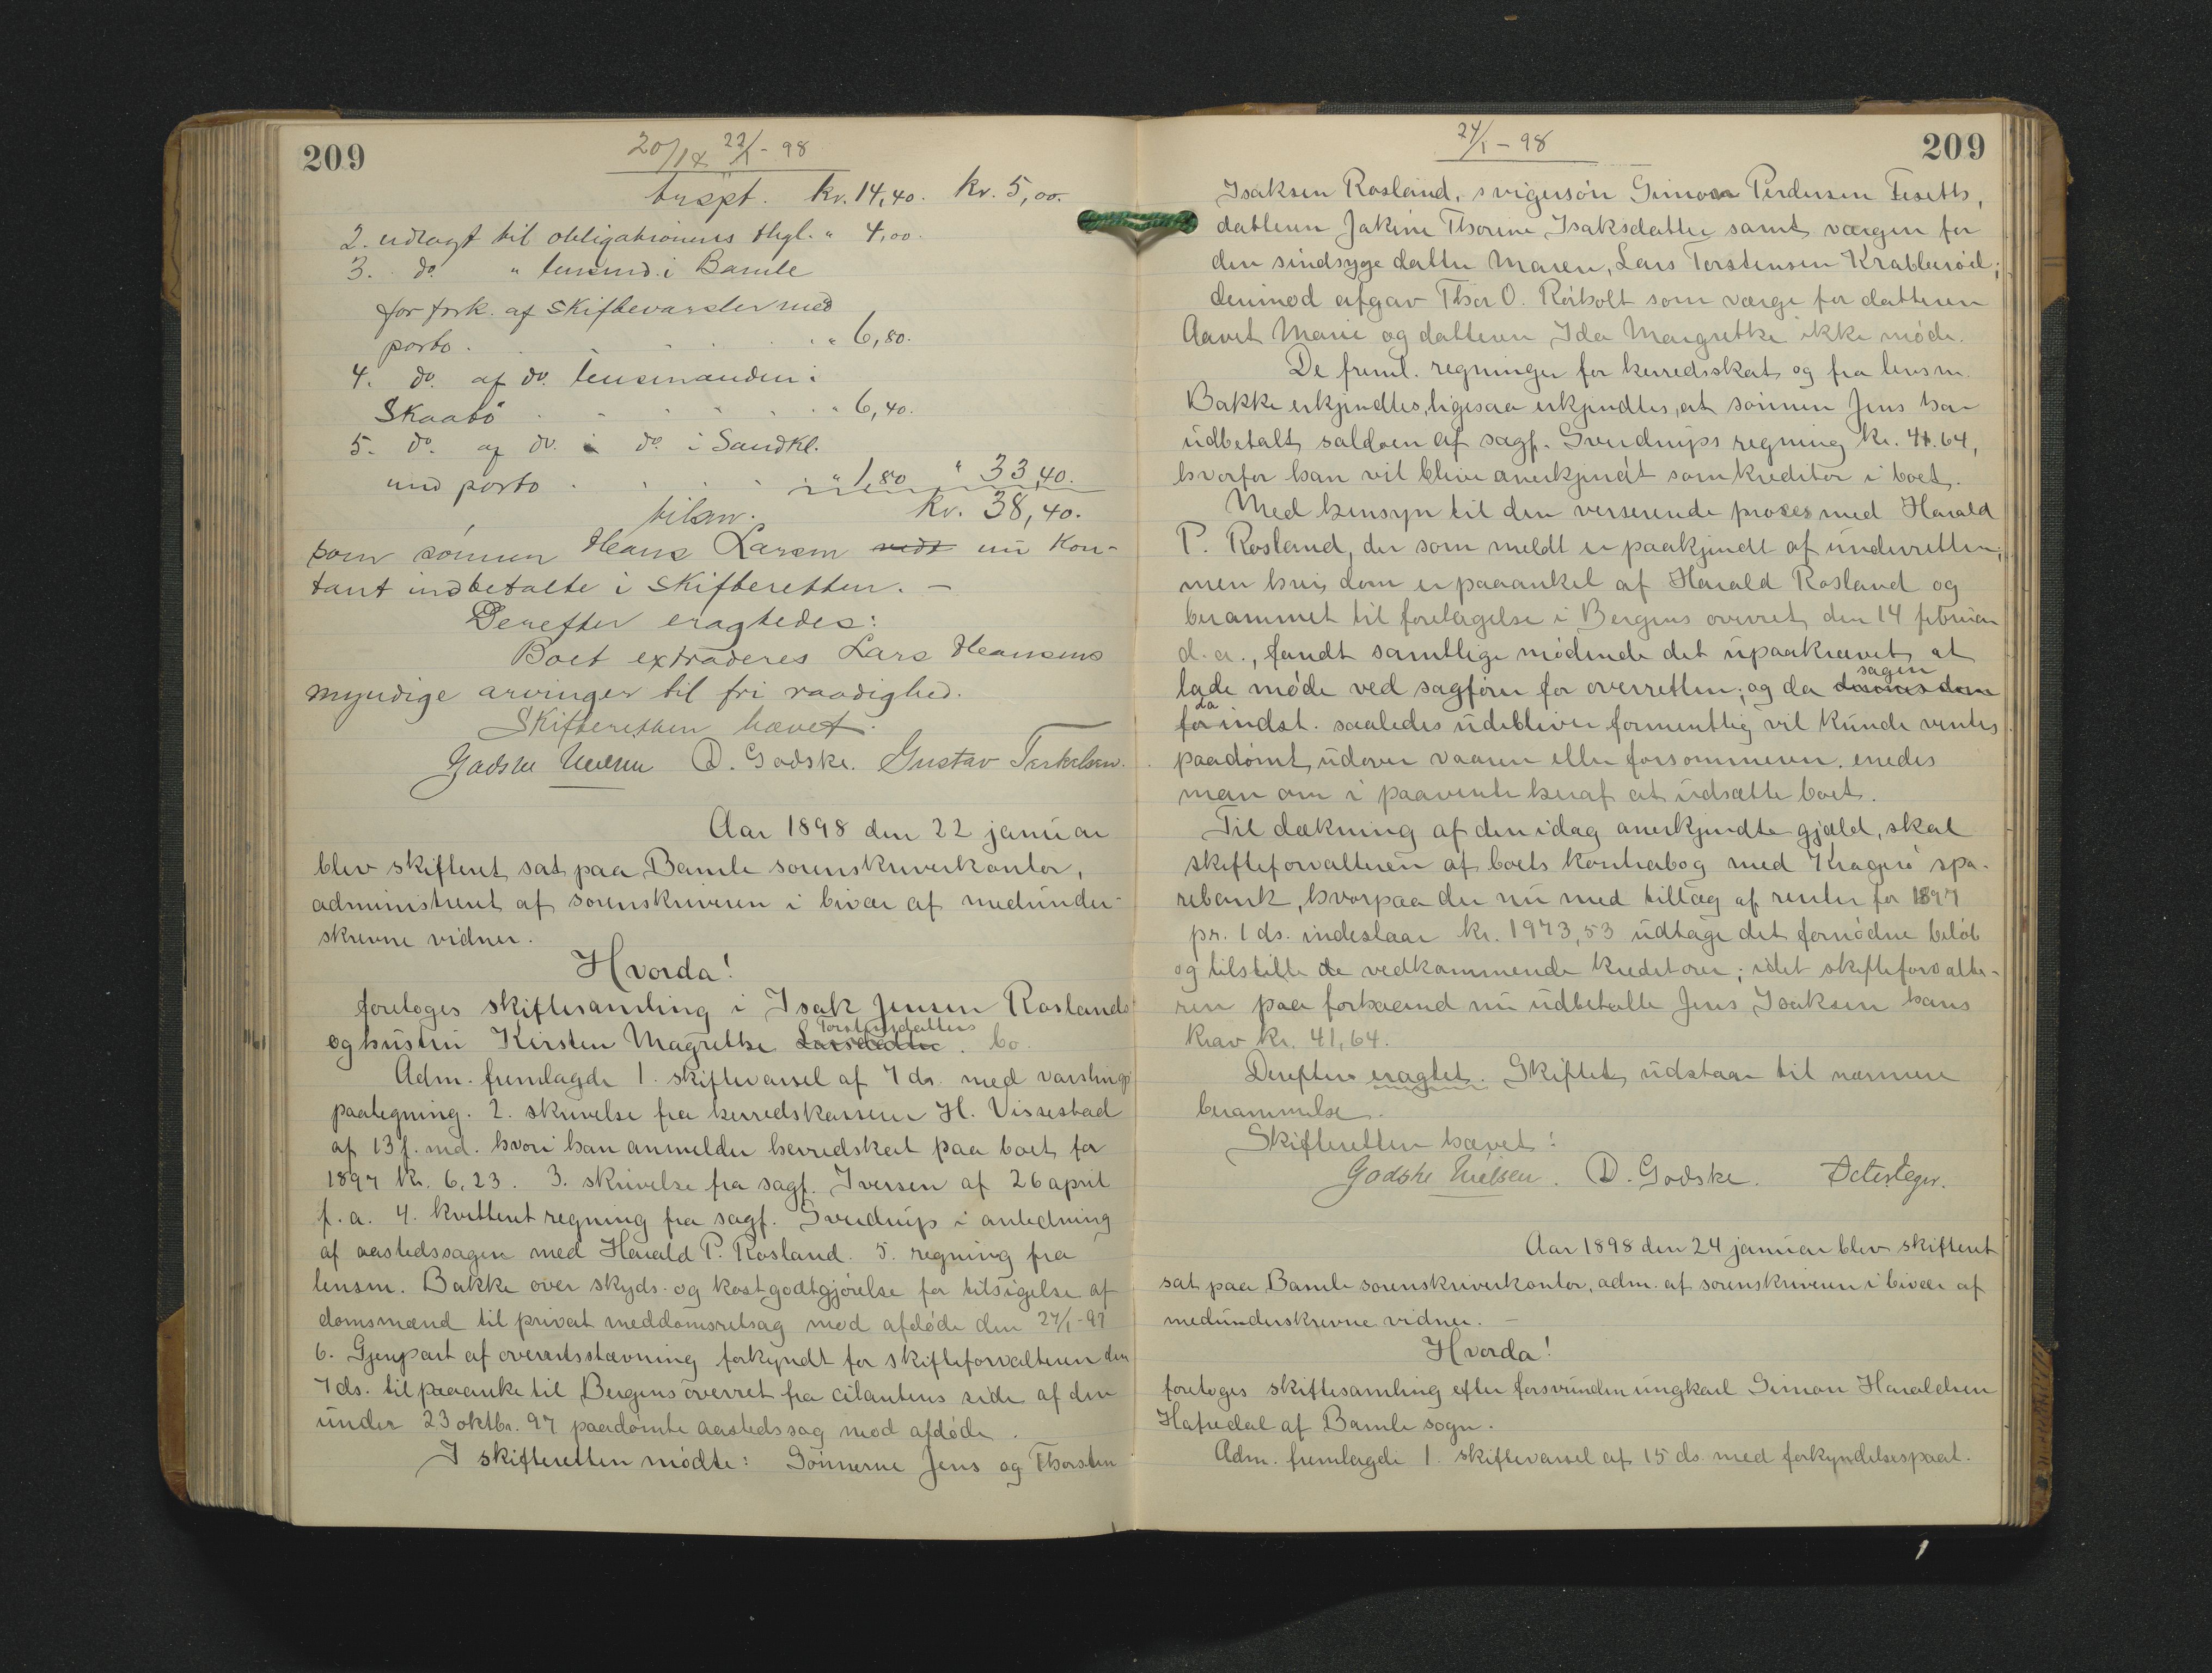 209
20/1 & 22/1 - 98
trspt. kr. 14,40. kr. 5,00.
2. udlagt til obligationens thgl. " 4,00.
3. do. " lensmd. i Bamle
for fork. af skiftevarsler med
porto . . . . . " 6,80.
4. do. af do. lensmanden i
Skaatö . . . . . " 6,40.
5. do. af do. i do. i Sandkl.
med porto . . . . " 1,80 " 33,40.
tilsm. kr. 38,40.
som sönnen Hans Larsen vedt nu kon-
tant indbetalte i skifteretten. —
Derefter eragtedes:
Boet extraderes Lars Hansens
myndige arvinger til fri raadighed.
Skifteretten hævet.
Godske Nielsen D. Godske. Gustav Terkelsen.
Aar 1898 den 22 januar
blev skifteret sat paa Bamle sorenskriverkontor,
administreret af sorenskriveren i bivær af medunder-
skrevne vidner.
Hvorda!
foretoges skiftesamling i Isak Jensen Roslands
og hustru Kirsten Magrethe Larsdatter Torstensdatters bo.
Adm. fremlagde 1. skiftevarsel af 7 ds. med varslings
paategning. 2. skrivelse fra herredskasserer H. Vissestad
af 13 f. md. hvori han anmelder herredskat paa boet for
1897 kr. 6,23. 3. skrivelse fra sagf. Iversen af 26 april
f. a. 4. kvitteret regning fra sagf. Sverdrup i anledning
af aastedssagen med Harald P. Rosland. 5. regning fra
lensm. Bakke over skyds- og kostgodtgjörelse for tilsigelse af
domsmænd til privat meddomsretsag mod afdöde den 27/1-97
6. Gjenpart af overretsstævning forkyndt for skifteforvalteren den
7 ds. til paaanke til Bergens overret fra citantens side af den
under 23 oktbr. 97 paadömte aastedssag mod afdöde.
I skifteretten mödte: Sönnerne Jens og Thorsten
24/1 - 98
209
Isaksen Rosland, svigersön Simon Pedersen Fiseth,
datteren Jakine Thorine Isaksdatter samt værgen for
den sindsyge datter Maren, Lars Torstensen Krabberöd;
derimod afgav Thor O. Rörholt som værge for datteren
Aavet Marie og datteren Ida Margrethe ikke möde.
De freml. regninger for herredsskat og fra lensm.
Bakke erkjendtes, ligesaa erkjendtes, at sönnen Jens har
udbetalt saldoen af sagf. Sverdrups regning kr. 41.64,
hvorfor han vil blive anerkjendt som kreditor i boet.
Med hensyn til den verserende proces med Harald
P. Rosland, der som meldt er paakjendt af underretten,
men hvis dom er paaanket af Harald Rosland og
berammet til foretagelse i Bergens overret den 14 februar
d. a., fandt samtlige mödende det upaakrævet at
lade möde ved sagförer for overretten; og da sagen
for da indst. saaledes udebliver formentlig vil kunde ventes
paadömt udover vaaren eller forsommeren, enedes
man om i paavente heraf at udsætte boet.
Til dækning af den idag anerkjendte gjæld, skal
skifteforvalteren af boets kontrabog med Kragerö spa-
rebank, hvorpaa der nu med tillæg af renter for 1897
pr. 1 ds. indestaar kr. 1973,53 udtage det fornödne belöb
og tilstille de vedkommende kreditorer; idet skifteforvalte-
ren paa forhaand nu udbetalte Jens Isaksen hans
krav kr. 41,64.
Derefter eragtet. Skiftet udstaar til nærmere
berammelse.
Skifteretten hævet!
Godske Nielsen. D. Godske.
Aar 1898 den 24 januar blev skifteret
sat paa Bamle sorenskriverkontor, adm. af sorenskriveren i bivær af
medunderskrevne vidner. —
Hvorda!
foretoges skiftesamling efter forsvunden ungkarl Simon Haraldsen
Hafredal af Bamle sogn.
Adm. fremlagde 1. skiftevarsel af 15 ds. med forkyndelsespaat.